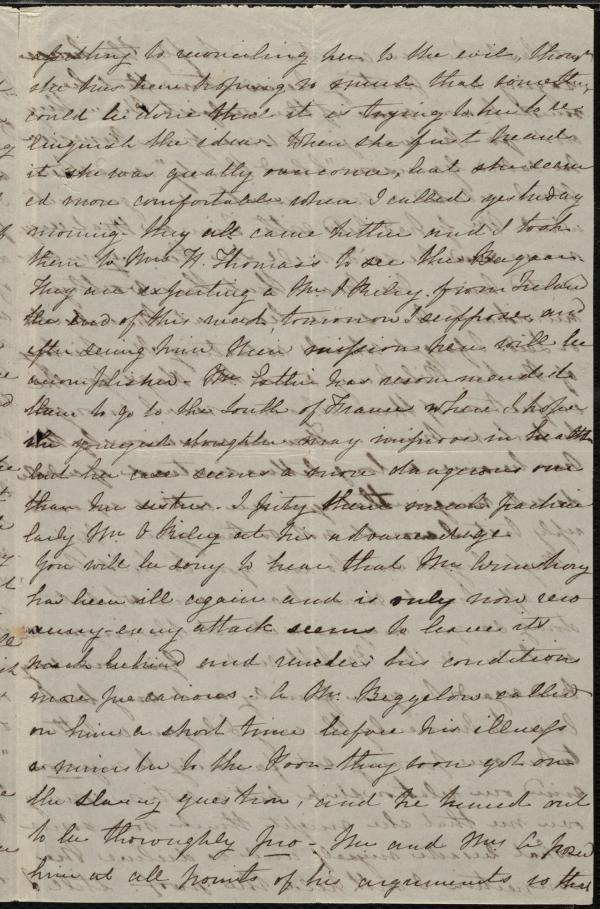 to reconciling her to the evil, though
she has been hoping so much that something
could be done that it is trying to her to re-
linquish the idea. When she first heard
it she was greatly overcome, but she seem
ed more comfortable when I called yesterday
morning they all came hither and I took
them to Mrs H. Thomas's to see the Bazaar.
They are expecting a Mr O Riley from Ireland
the end of this week, tomorrow I suppose and
after seeing him their mission here will be
accomplished. Mr Estlin has recommended
them to go to the South of France where I hope
the youngest daughter may improve in health
but her case seems a more dangerous one
than her sisters. I pity them much particu
larly Mr O Riley at his advanced age
You will be sorry to hear that Mr Armstrong
has been ill again and is only now reco
vering - every attack seems to leave its
mark behind and render his condition
more precarious. A Mr. called
on him a short time before his illness
a minister to the Poor - they soon got on
the slavery question, and he turned out
to be thoroughly pro - Mr and Mrs A posed
him at all points of his arguments so that